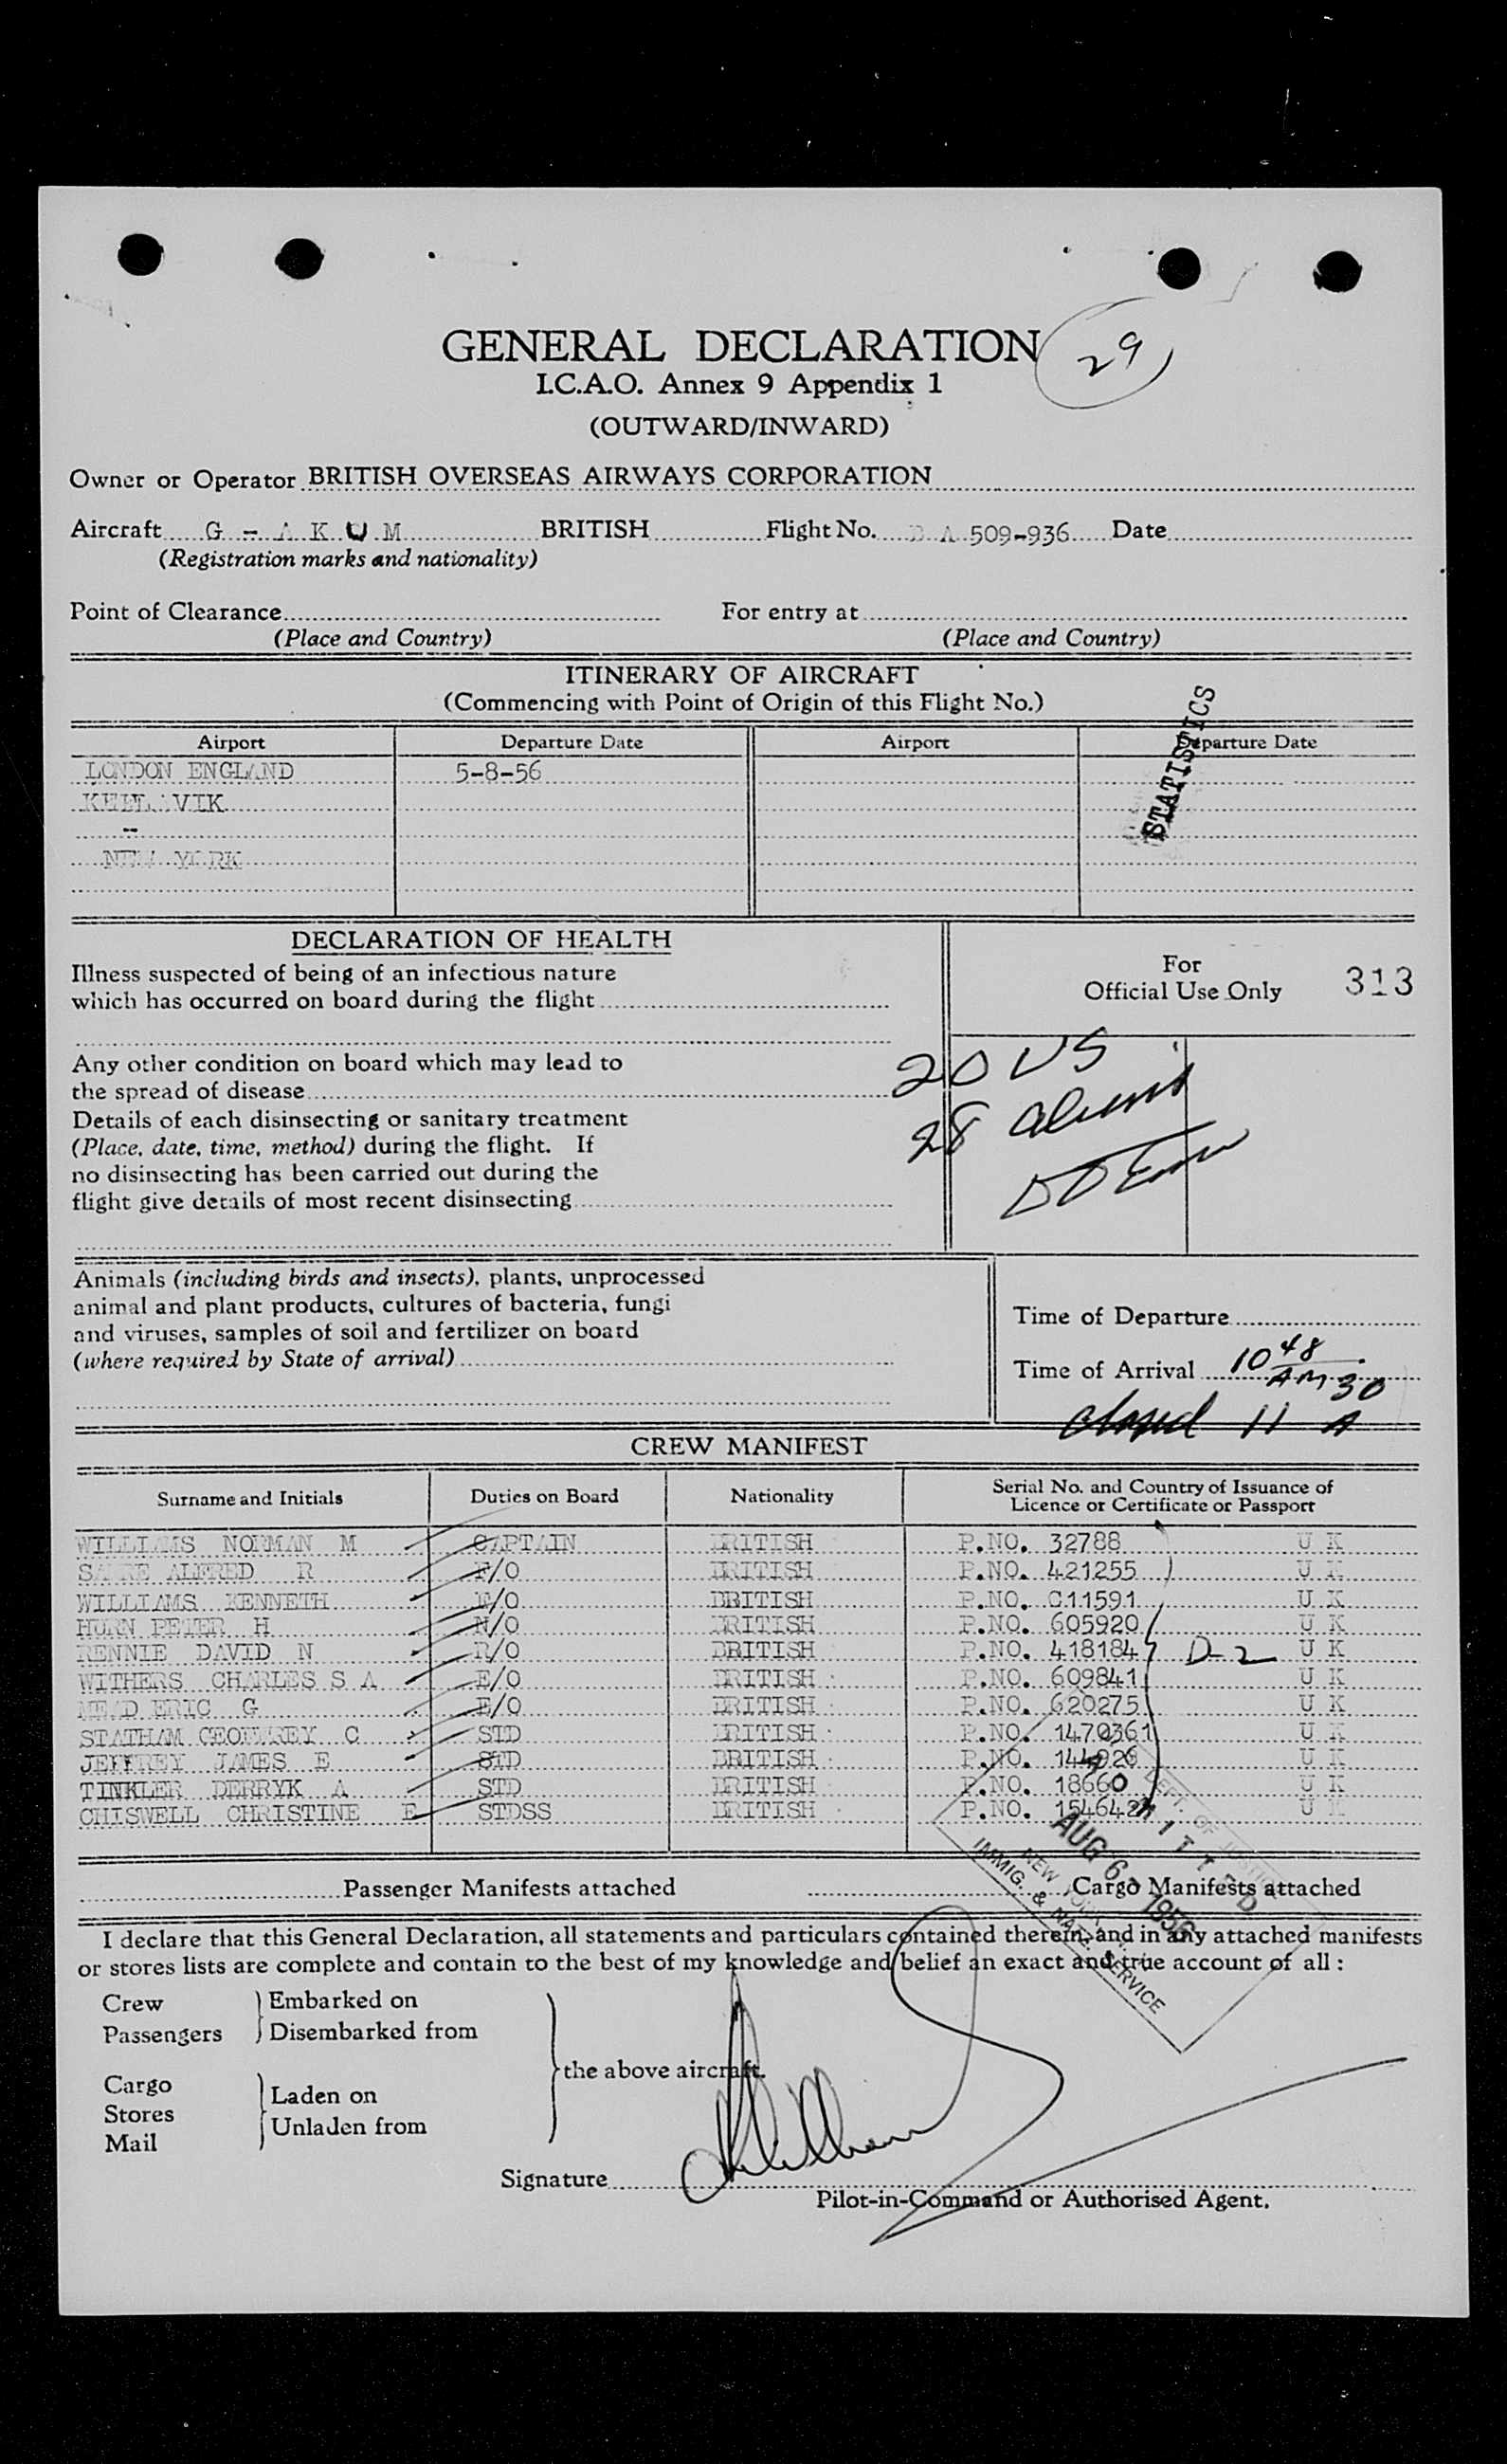 GENERAL DECLARATION 29
I.C.A.O. Annex 9 Appendix 1
(OUTWARD/INWARD)
Owner or Operator BRITISH OVERSEAS AIRWAYS CORPORATION
Aircraft G - A K U M BRITISH Flight No. B A 509-936 Date
(Registration marks and nationality)
Point of Clearance For entry at
(Place and Country) (Place and Country)
ITINERARY OF AIRCRAFT
(Commencing with Point of Origin of this Flight No.)
STATISTICS
Airport Departure Date Airport Departure Date
LONDON ENGLAND 5-8-56
--
NEW YORK
DECLARATION OF HEALTH
Illness suspected of being of an infectious nature
which has occurred on board during the flight
For
Official Use Only 313
Any other condition on board which may lead to
the spread of disease
Details of each disinsecting or sanitary treatment
(Place, date, time, method) during the flight. If
no disinsecting has been carried out during the
flight give details of most recent disinsecting
20 US
28 aliens
Animals (including birds and insects), plants, unprocessed
animal and plant products, cultures of bacteria, fungi
and viruses, samples of soil and fertilizer on board
(where required by State of arrival)
Time of Departure
Time of Arrival 10 48 AM
closed 11 30 A
CREW MANIFEST
Surname and Initials Duties on Board Nationality Serial No. and Country of Issuance of
Licence or Certificate or Passport
WILLIAMS NORMAN M CAPTAIN BRITISH P.NO. 32788 U K
ALFRED R F/O BRITISH P.NO. 421255 U K
WILLIAMS KENNETH F/O BRITISH P.NO. C11591 U K
HORN PETER H N/O BRITISH P.NO. 605920 U K
RENNIE DAVID N R/O BRITISH P.NO. 418184 D-2 U K
WITHERS CHARLES S A E/O BRITISH P.NO. 609841 U K
MEAD ERIC G E/O BRITISH P.NO. 620275 U K
STATHAM GEOFFREY C STD BRITISH P.NO. 1470361 U K
JEFFREY JAMES E STD BRITISH P.NO. U K
TINKLER DERRYK A STD BRITISH P.NO. 18660 U K
CHISWELL CHRISTINE E STDSS BRITISH P.NO. 154642 U K
ADMITTED
DEPT. OF JUSTICE
AUG 6 1956
NEW YORK, N.Y.
IMMIG. & NATZ. SERVICE
Passenger Manifests attached Cargo Manifests attached
I declare that this General Declaration, all statements and particulars contained therein, and in any attached manifests
or stores lists are complete and contain to the best of my knowledge and belief an exact and true account of all :
Crew Embarked on
Passengers Disembarked from
the above aircraft.
Cargo Laden on
Stores Unladen from
Mail
Signature
Pilot-in-Command or Authorised Agent.